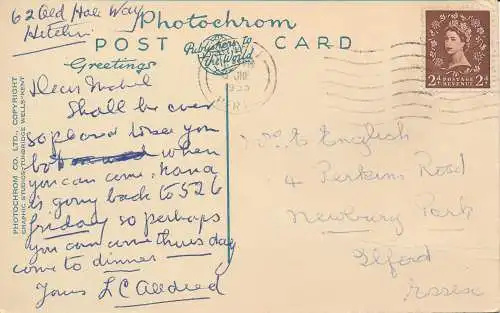 62 Old Hale Way
Hitchin
Photochrom
POST CARD
Publishers to
the World
Greetings
2D POSTAGE REVENUE 2D
PHOTOCHROM CO. LTD., COPYRIGHT
GRAPHIC STUDIOS, TUNBRIDGE WELLS, KENT
Dear Mabel
Shall be ever
so pleasd to see you
both when
you can come, nana
is going back to 526
friday so perhaps
you can come thursday
come to dinner
Yours L C
English
4 Perkins Road
Newbury Park
Ilford
Essex